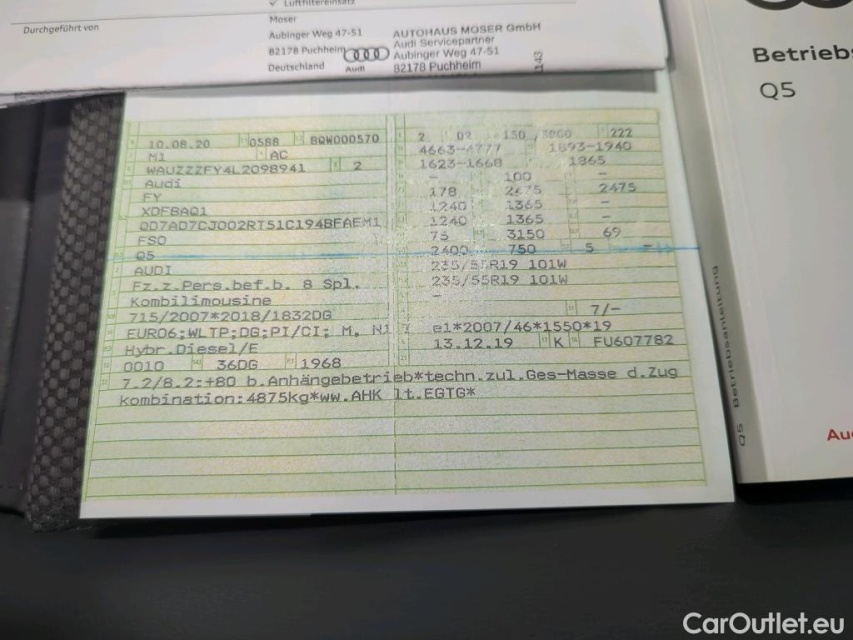 Luftfiltereinsatz
Durchgeführt von
Moser
Aubinger Weg 47-51
82178 Puchheim
Deutschland
Audi
AUTOHAUS MOSER GmbH
Audi Servicepartner
Aubinger Weg 47-51
82178 Puchheim
Betriebs
Q5
10.08.20 0588 BQW000570
M1 AC
WAUZZZFY4L2098941 2
Audi
FY
XDFBAQ1
QD7AD7CJ002RT51C194BFAEM1
FSO
Q5
AUDI
Fz.z.Pers.bef.b. 8 Spl.
Kombilimousine
715/2007*2018/1832DG
EURO6;WLTP;DG;PI/CI; M, N1 I
Hybr.Diesel/E
0010 36DG 1968
2 02 150 /3900 222
4663-4777 1893-1940
1623-1668 1865
- 100 -
178 2475 2475
1240 1365 -
1240 1365 -
75 3150 69
2400 750 5 -
235/55R19 101W
235/55R19 101W
-
7/-
e1*2007/46*1550*19
13.12.19 K FU607782
7.2/8.2:+80 b.Anhängebetrieb*techn.zul.Ges-Masse d.Zug
kombination:4875kg*ww.AHK lt.EGTG*
Q5 Betriebsanleitung
Au
CarOutlet.eu